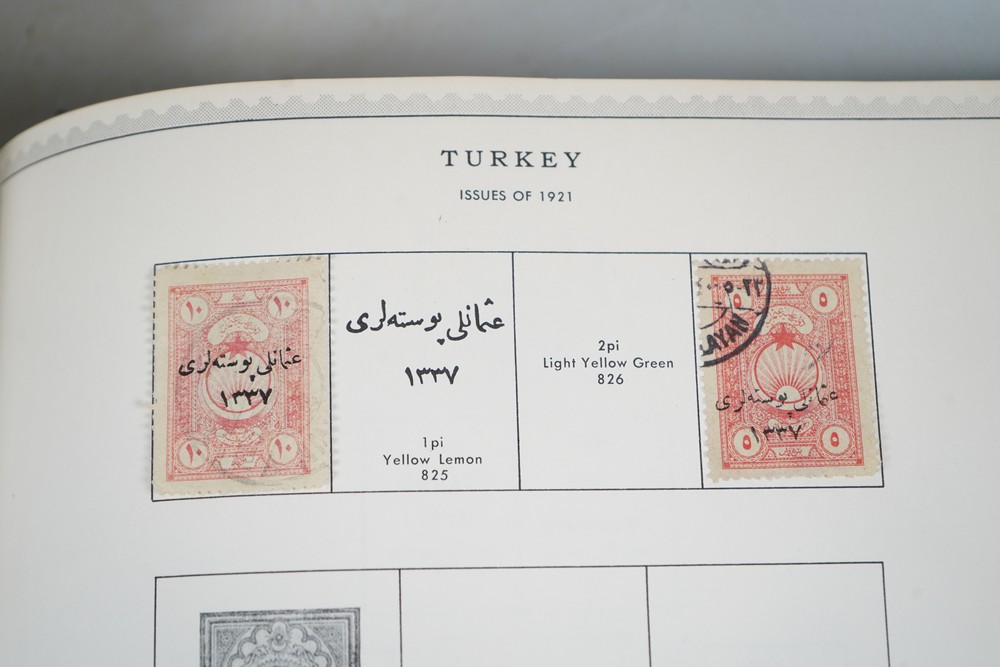 TURKEY
ISSUES OF 1921
١٠ ١٠
عثمانلی پوسته‌لری
١٣٣٧
١٠ ١٠
عثمانلی پوسته‌لری
١٣٣٧
1pi
Yellow Lemon
825
2pi
Light Yellow Green
826
٥ ٥
LAYAN
عثمانلی پوسته‌لری
١٣٣٧
٥ ٥